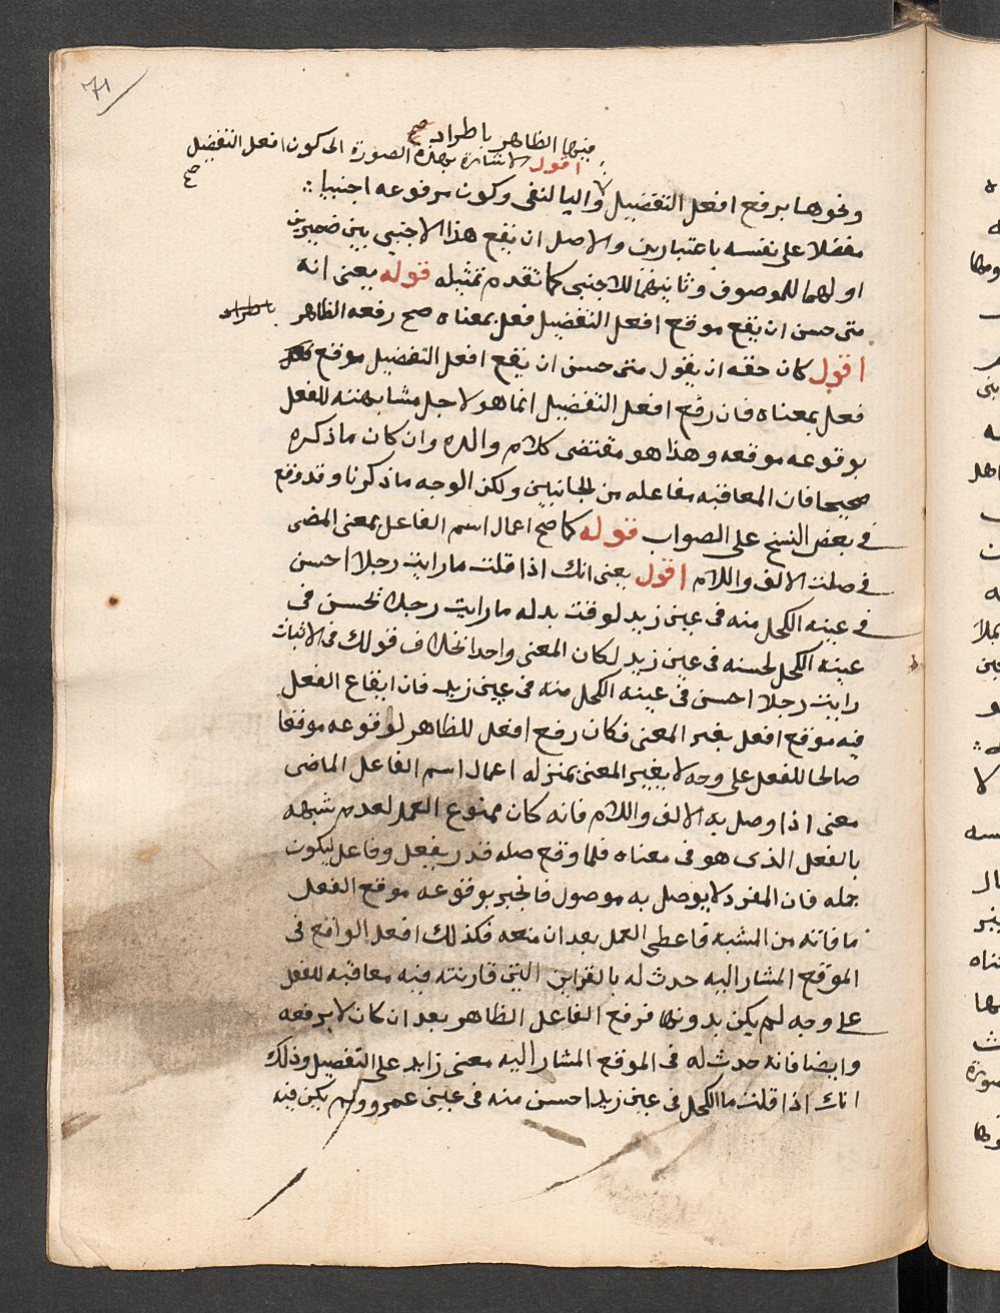 71
فيها الظاهر باطراد صح
اقول الاشارة بهذه الصورة الى كون افعل التفضيل
صح
ونحوها يرفع افعل التفضيل واليا لنفى وكون مرفوعه اجنبيا
مفضلا على نفسه باعتبارين والاصل ان يقع هذا الاجنبى بين ضميرين
اولهما للموصوف وثانيهما للاجنبى كما تقدم تمثيله قوله يعنى انه
متى حسن ان يقع موقع افعل التفضيل فعل بمعناه صح رفعه الظاهر باطراد
اقول كان حقه ان يقول متى حسن ان يقع افعل التفضيل موقع
فعل بمعناه فان رفع افعل التفضيل انما هو لاجل مشابهته للفعل
بوقوعه موقعه وهذا هو مقتضى كلام والده وان كان ما ذكره
صحيحا فان المعاقبه مفاعله من الجانبين ولكن الوجه ما ذكرنا وقد وقع
فى بعض النسخ على الصواب قوله كما صح اعمال اسم الفاعل بمعنى المضى
فى صلت الالف واللام اقول يعنى انك اذا قلت ما رايت رجلا احسن
فى عينه الكحل منه فى عين زيد لو قت بدله ما رايت رجلا يحسن فى
عينه الكحل لحسنه فى عين زيد لكان المعنى واحدا بخلاف قولك فى الاثبات
رايت رجلا احسن فى عينه الكحل منه فى عين زيد فان ايقاع الفعل
فيه موقع افعل يغير المعنى فكان رفع افعل للظاهر لوقوعه موقعا
صالحا للفعل على وجه لا يغير المعنى بمنزله اعمال اسم الفاعل الماضى
معنى اذا وصل به الالف واللام فانه كان ممنوع العمل لعدم شبهه
بالفعل الذى هو فى معناه فلما وقع صله قدر بفعل وفاعل ليكون
جمله فان المفرد لا يوصل به موصول فانجبر بوقوعه موقع الفعل
ما فاته من الشبه فاعطى العمل بعد ان منعه فكذلك افعل الواقع فى
الموقع المشار اليه حدث له بالقراين التى قارنته فيه معاقبه للفعل
على وجه لم يكن بدونها فرفع الفاعل الظاهر بعد ان كان لا يرفعه
وايضا فانه حدث له فى الموقع المشار اليه معنى زايد على التفضيل وذلك
انك اذا قلت ما الكحل فى عين زيد احسن منه فى عين عمرو ولم يكن فيه